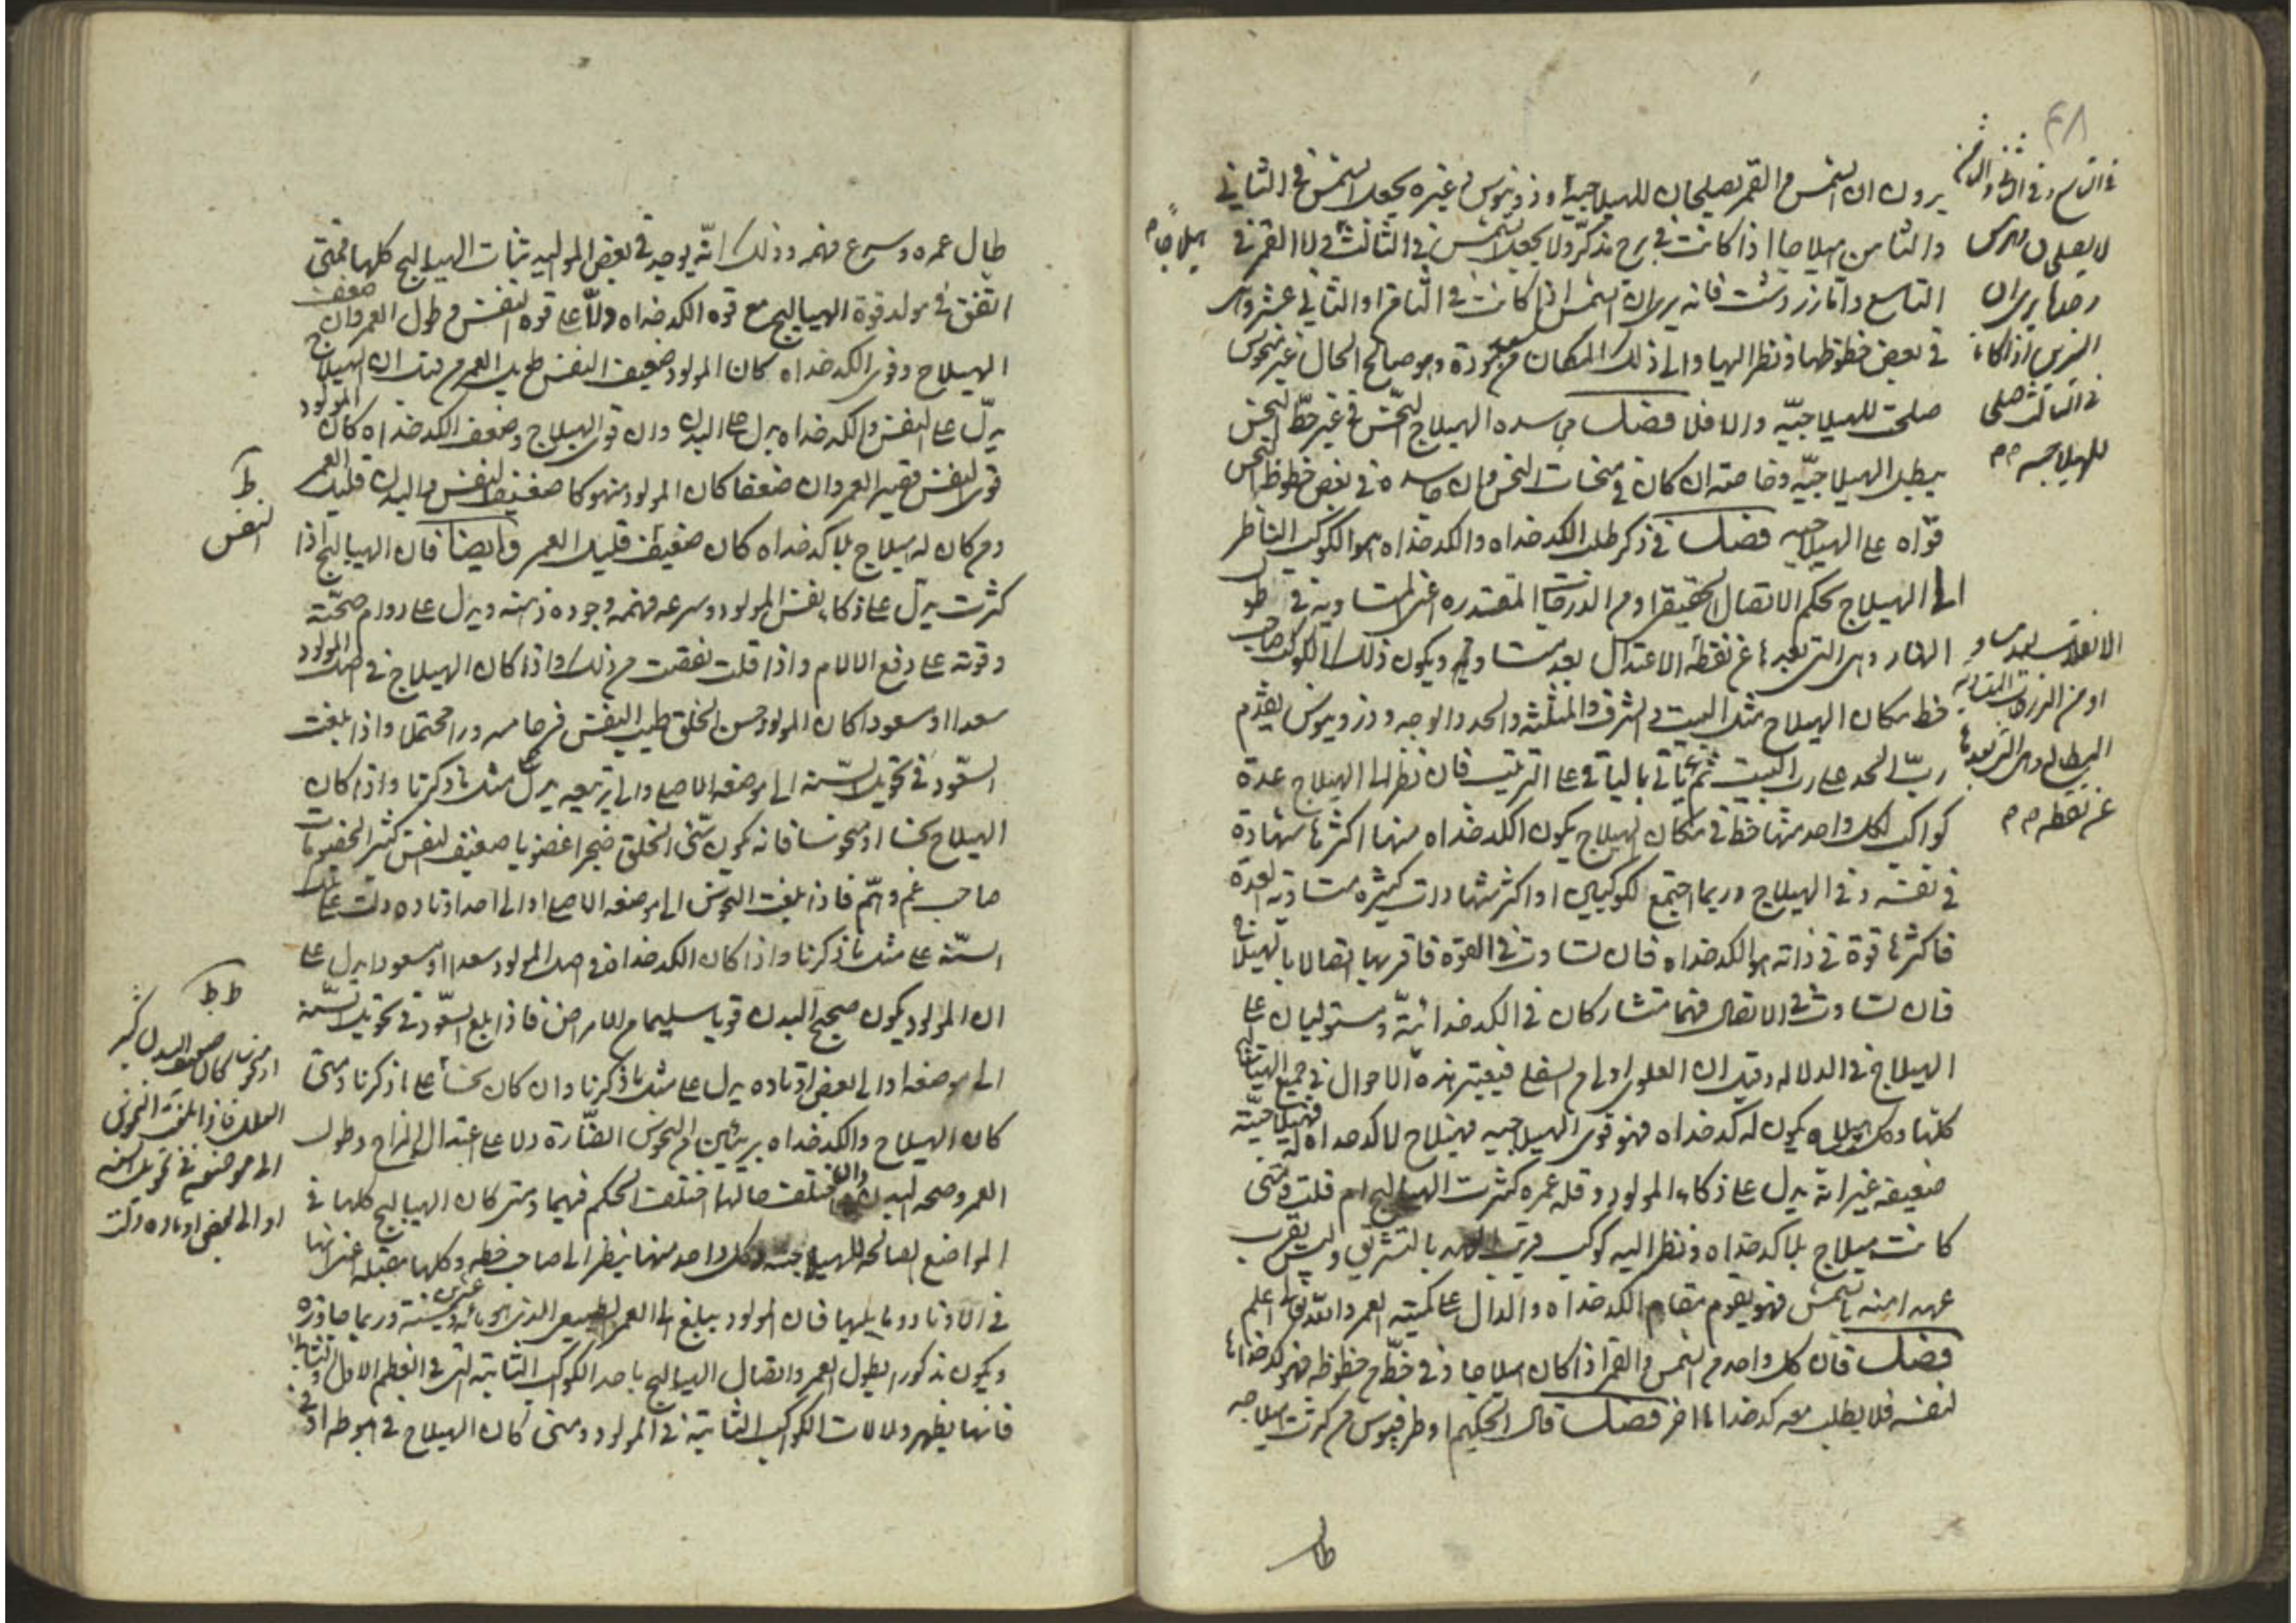 ٤٨
يرون ان الشمس والقمر يصلحان للهيلاجية وذرونيوس وغيره يجعل الشمس في الثاني
والثامن هيلاجا اذا كانت في برج مذكر ولا يجعل الشمس في الثالث ولا القمر في
التاسع واما زردشت فانه يرى ان الشمس اذا كانت في الثامن او الثاني عشر
في بعض حظوظها ونظر اليها والى ذلك المكان سعد وهو صالح الحال غير منحوس
صلحت للهيلاجية والا فلا فصل الهيلاج النحس في غير حظ النحس
يبطل الهيلاجية وخاصة ان كان في النحس وان في بعض حظوظ النحس
قواه على الهيلاجية فصل في ذكر طلب الكدخداه والكدخداه هو الكوكب الناظر
الى الهيلاج بحكم الاتصال الحقيقي او من الدرجات المقتدرة اعني المتساوية في طول
النهار وهي التي بعدها عن نقطة الاعتدال بعد متساو ويكون ذلك الكوكب صاحب
حظ مكان الهيلاج مثل البيت والشرف والمثلثة والحد والوجه وذرونيوس يقدم
رب الحد على رب البيت ثم ياتي بالباقي على الترتيب فان نظر الى الهيلاج عدة
كواكب لكل واحد منها حظ في مكان الهيلاج يكون الكدخداه منها اكثرها شهادة
في نفسه وفي الهيلاج وربما اجتمع لكوكبين او اكثر شهادات كثيرة متساوية العدة
فاكثرها قوة في ذاته هو الكدخداه فان تساوت في القوة فاقربها اتصالا بالهيلاج
فان تساوت في الاتصال فهما متشاركان في الكدخدائية ومستوليان على
الهيلاج في الدلالة وقيل ان العلوي اولى من السفلي فيعتبر هذه الاحوال في جميع الهيالج
كلها وكل هيلاج يكون له كدخداه فهو قوي الهيلاجية وهيلاج لا كدخداه له فهيلاجيته
ضعيفة غير انه يدل على ذكاء المولود وقلة عمره كثرت الهيالج ام قلت ومتى
كانت هيلاج بلا كدخداه ونظر اليه كوكب قريب العهد بالتشريق وليس بقرب
عهد امنه بالشمس فهو يقوم مقام الكدخداه والدال على كمية العمر والله تعالى اعلم
فصل فان كل واحد من الشمس والقمر اذا كان هيلاجا وفي حظ من حظوظه فهو كدخداها
لنفسه فلا يطلب معه كدخداها اخر فصل قال الحكيم من كثرت هيلاجه
طال
هيلاجا م
في الثالث صلى
للهيلاجية م م
عن نقطة م م
طال عمره وسرع فهمه وذلك انه يوجد في بعض المواليد ثبات الهيالج كلها فمتى
اتفق في مولد قوة الهيالج مع قوة الكدخداه دلا على قوة النفس وطول العمر وان ضعف
الهيلاج وقوى الكدخداه كان المولود ضعيف النفس طويل العمر من قبل ان الهيلاج
يدل على النفس والكدخداه يدل على البدن وان قوى الهيلاج وضعف الكدخداه كان المولود
قوى النفس قصير العمر وان ضعفا كان المولود منهوكا ضعيف النفس والبدن قليل العمر
ومن كان له هيلاج بلا كدخداه كان ضعيف قليل العمر وايضا فان الهيالج اذا
كثرت يدل على ذكاء نفس المولود وسرعة فهمه وجودة ذهنه ويدل على دوام صحته
وقوته على دفع الالام واذا قلت نقصت من ذلك واذا كان الهيلاج في اصل المولود
سعدا او مسعودا كان المولود حسن الخلق طيب النفس فرحا مسرورا محتملا واذا بلغت
السعود في تحويل السنة الى موضعه الاصلى والى تربيعه يدل على مثل ما ذكرنا واذا كان
الهيلاج نحسا او منحوسا فانه يكون سيئ الخلق ضجرا غضوبا ضعيف النفس كثير الخصومات
صاحب غم وهم فاذا بلغت النحوس الى موضعه الاصلى او الى احد اوتاده دلت على تلك
السنة على مثل ما ذكرنا واذا كان الكدخداه في اصل المولود سعدا او مسعودا يدل على
ان المولود يكون صحيح البدن قويا سليما من الامراض فاذا بلغ السعود في تحويل السنة
الى موضعه او الى بعض اوتاده يدل على مثل ما ذكرنا وان كان نحسا على ما ذكرنا ومتى
كان الهيلاج والكدخداه بريئين من النحوس الضارة دلا على اعتدال المزاج وطول
العمر وصحة البدن وان اختلفت حالهما اختلفت الحكم فيهما ومتى كان الهيالج كلها في
المواضع الصالحة للهيلاجية وكل واحد منها ينظر الى صاحب حظه وكلها مقبلة اعني انها
في الاوتاد وما يليها فان المولود يبلغ الى العمر الطبيعي الذي هو مائة وعشرين سنة وربما جاوزه
ويكون مذكورا بطول العمر واتصال الهيالج باحد الكواكب الثابتة التي في العظم الاول والثاني
فانها يظهر دلالات الكواكب الثابتة في المولود ومتى كان الهيلاج في هبوطه او في
ط
النفس
ط ط
او منحوسا كان ضعيف البدن كثير
العلل فاذا بلغت النحوس
الى موضعه في تحويل السنة
او الى بعض اوتاده دلت